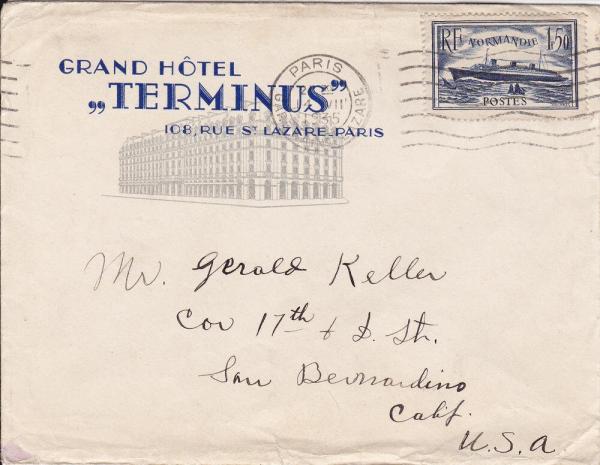 GRAND HÔTEL
„TERMINUS”
108, RUE ST LAZARE_PARIS
PARIS
1935
LAZARE
RF NORMANDIE 1F50
POSTES
Mr. Gerald Keller
Cor 17th & D. Sts.
San Bernardino
Calif.
U.S.A